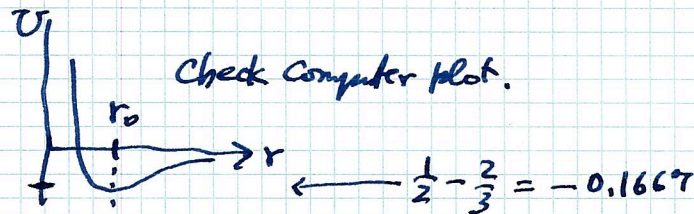 U
Check Computer plot.
r₀
r
1/2 - 2/3 = -0.1667